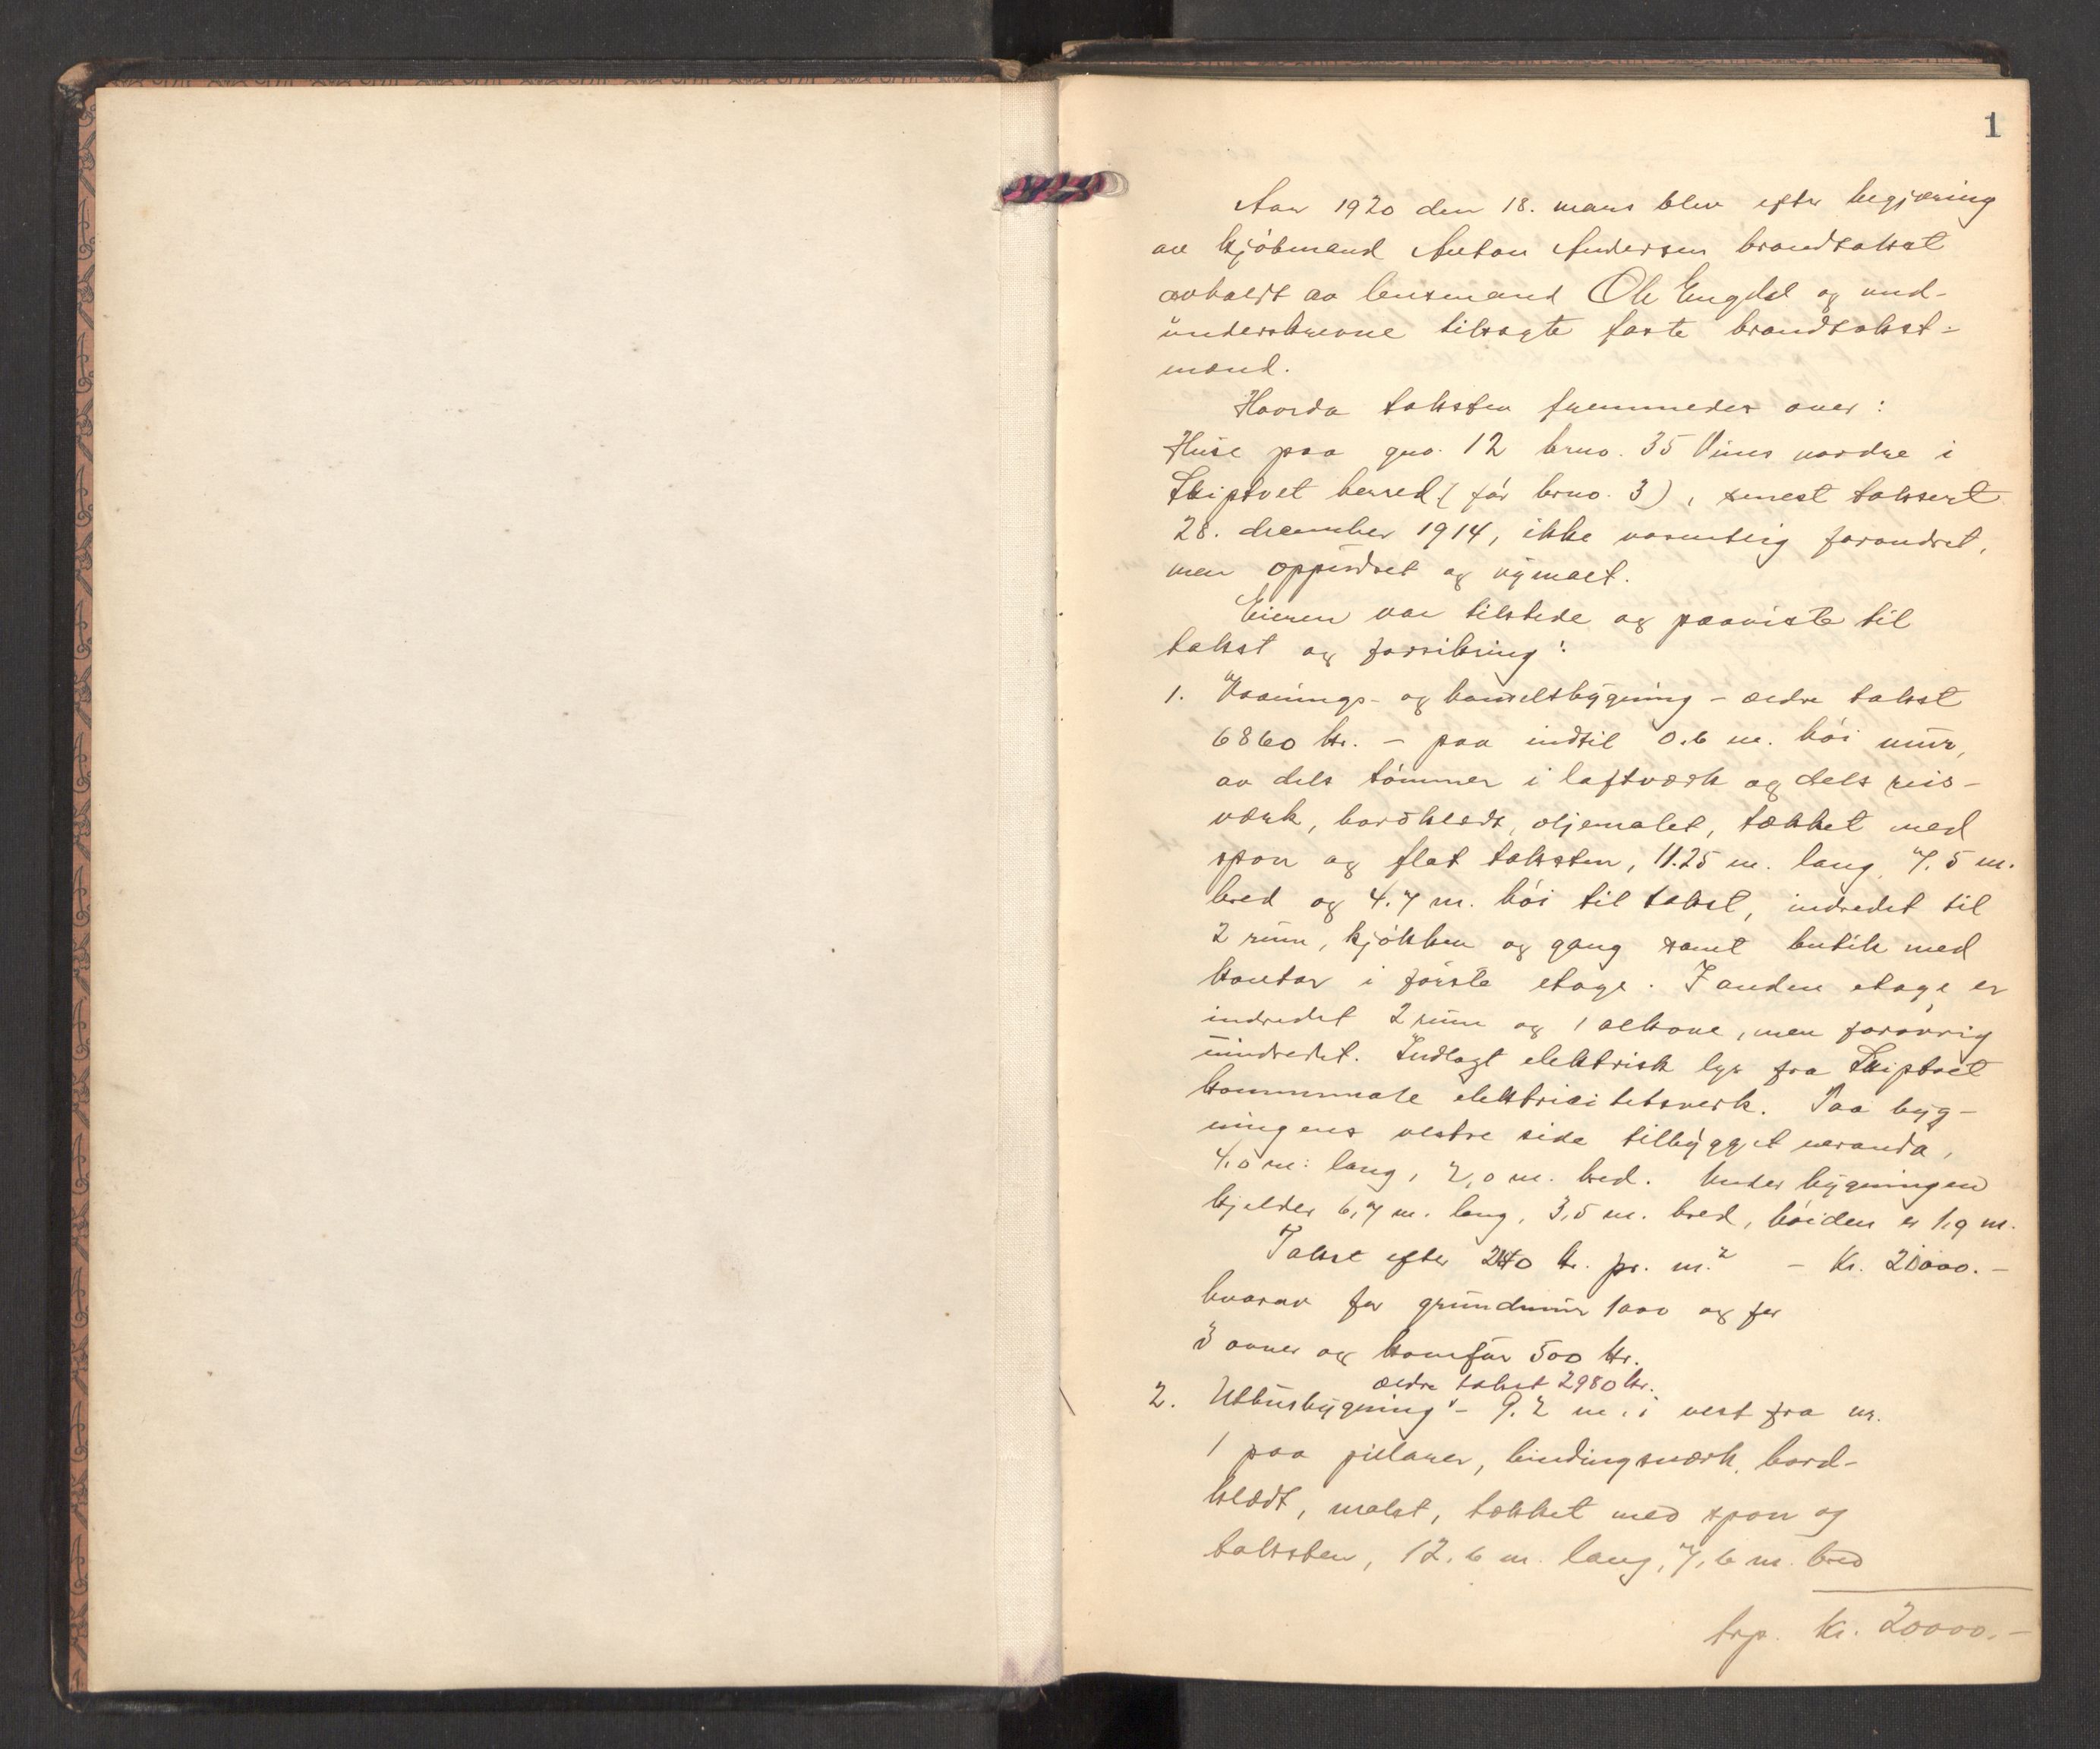 1
Aar 1920 den 18. mars blev efter begjæring
av kjøbmand Anton Andersen brandtakst
avholdt av lensmand Ole Engdal og und-
underskrevne tilsagte faste brandtakst-
mænd.
Hvorda taksten fremmedes over:
Huse paa gno. 12 brno. 35 Vines nordre i
Skiptvet herred (før brno. 3), senest taksert
28. december 1914, ikke væsentlig forandret,
men oppudset og nymalt.
Eieren var tilstede og paaviste til
takst og forsikring:
1. Vaanings- og handelsbygning - ældre takst
6860 kr. - paa indtil 0.6 m. høi mur,
av dels tømmer i laftverk og dels reis-
værk, bordklædt, oljemalet, tækket med
spon og flat taksten, 11.25 m. lang, 7.5 m.
bred og 4.7 m. høi til takst, indredet til
2 rum, kjøkken og gang samt butik med
kontor i første etage. I anden etage er
indredet 2 rum og 1 alkove, men forøvrig
uindredet. Indlagt elektrisk lys fra Skiptvet
kommunale elektricitetsverk. Paa byg-
ningens vestre side tilbygget veranda,
4,0 m. lang, 2,0 m. bred. Under bygningen
kjelder 6,7 m. lang, 3,5 m. bred, høiden er 1,9 m.
Takst efter 240 kr. pr. m.² - Kr. 20000.-
hvorav for grundmur 1000 og for
3 ovner og komfur 500 kr.
ældre takst 2980 kr.
2. Uthusbygning - 9.2 m. i vest fra nr.
1 paa pilarer, bindingsværk, bord-
klædt, malet, tækket med spon og
taksten, 12.6 m. lang, 7,6 m. bred
trp. Kr. 20000.-